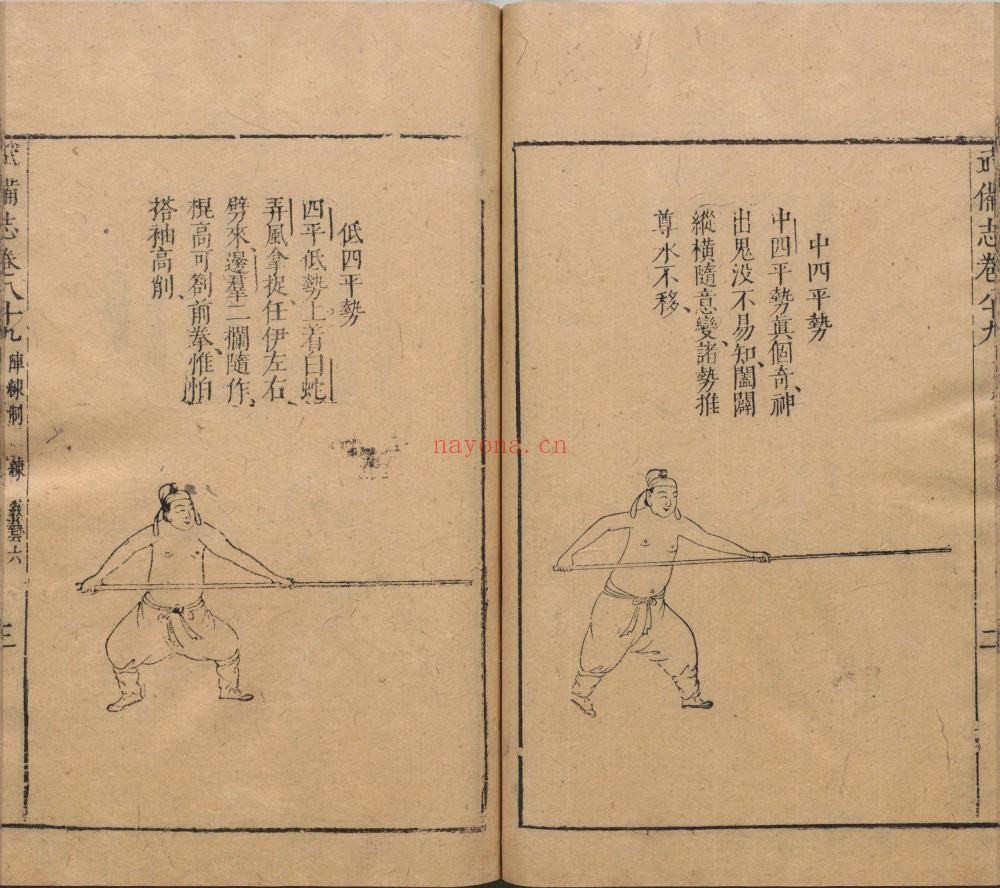 武備志卷八十九
二
中四平勢
中四平勢眞個奇、神
出鬼没不易知、闔闢
縱橫隨意變、諸勢推
尊永不移、
低四平勢
四平低勢上着白蛇
弄風拿捉任伊左右、
劈來、邊羣二攔隨作、
棍高可劄前拳、惟怕
搭袖高削、
武備志卷八十九 陣練制 練 教藝六
三
nayona.cn